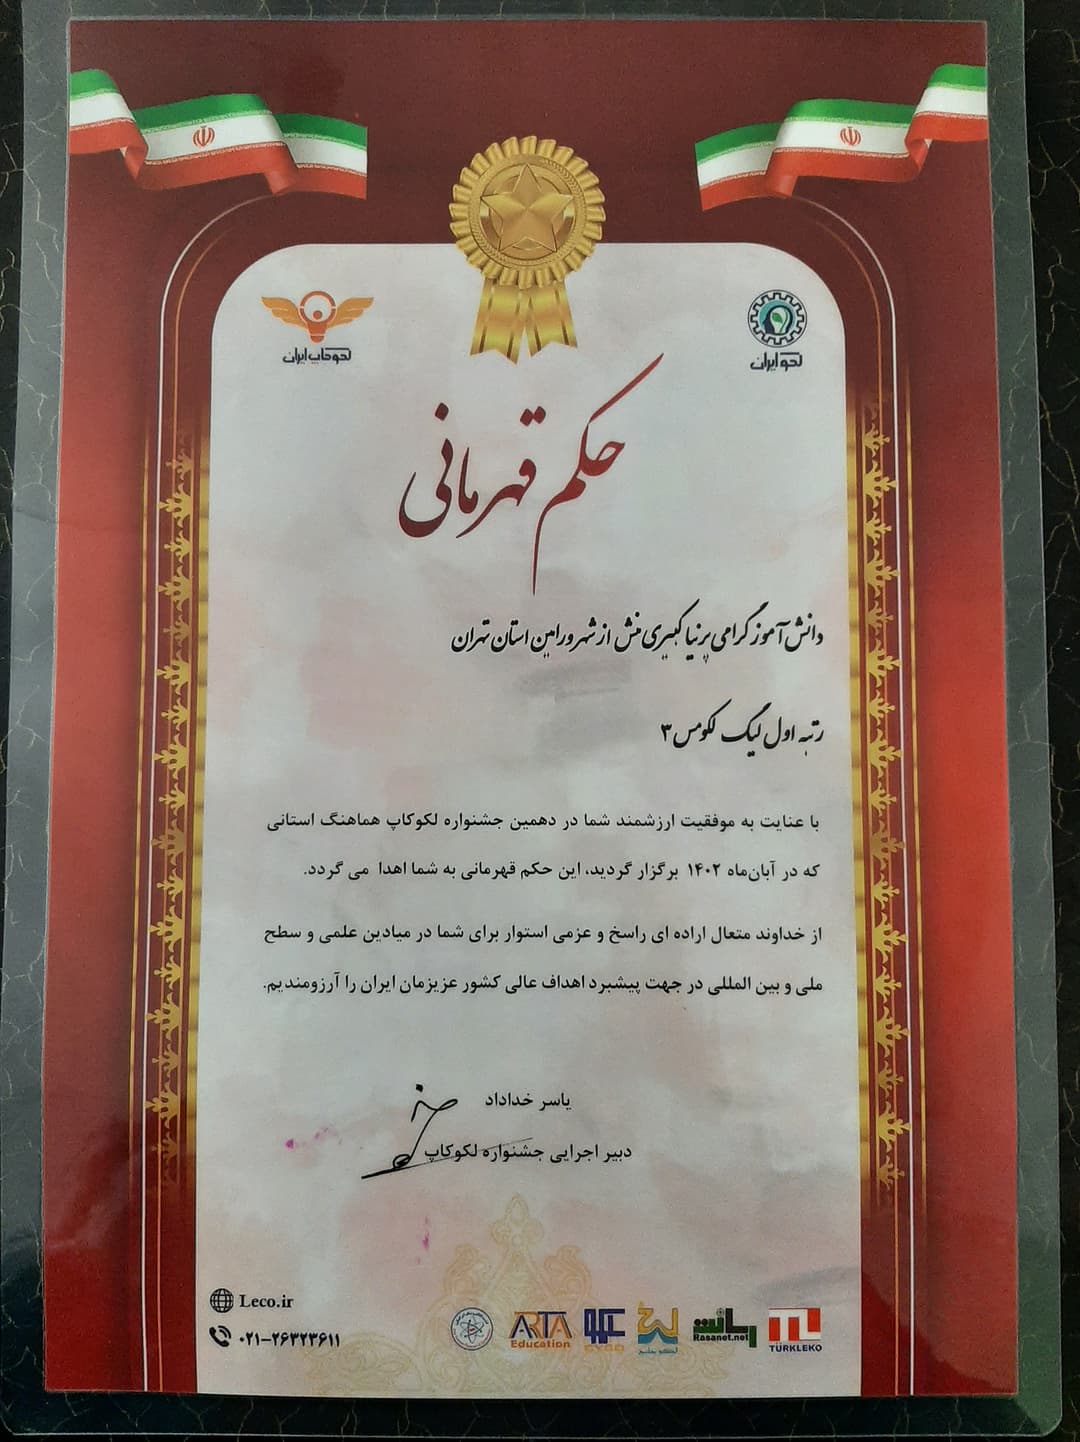 لکو کاپ ایران
لکو ایران
حکم قهرمانی
دانش آموز گرامی پرنیا کبیری منش از شهر ورامین استان تهران
رتبه اول لیگ لکومس ۳
با عنایت به موفقیت ارزشمند شما در دهمین جشنواره لکوکاپ هماهنگ استانی
که در آبان‌ماه ۱۴۰۲ برگزار گردید، این حکم قهرمانی به شما اهدا می گردد.
از خداوند متعال اراده ای راسخ و عزمی استوار برای شما در میادین علمی و سطح
ملی و بین المللی در جهت پیشبرد اهداف عالی کشور عزیزمان ایران را آرزومندیم.
یاسر خداداد
دبیر اجرایی جشنواره لکوکاپ
Leco.ir
۰۲۱-۲۶۳۲۳۶۱۱
ARTA
Education
رسانت
Rasanet.net
TÜRKLEKO